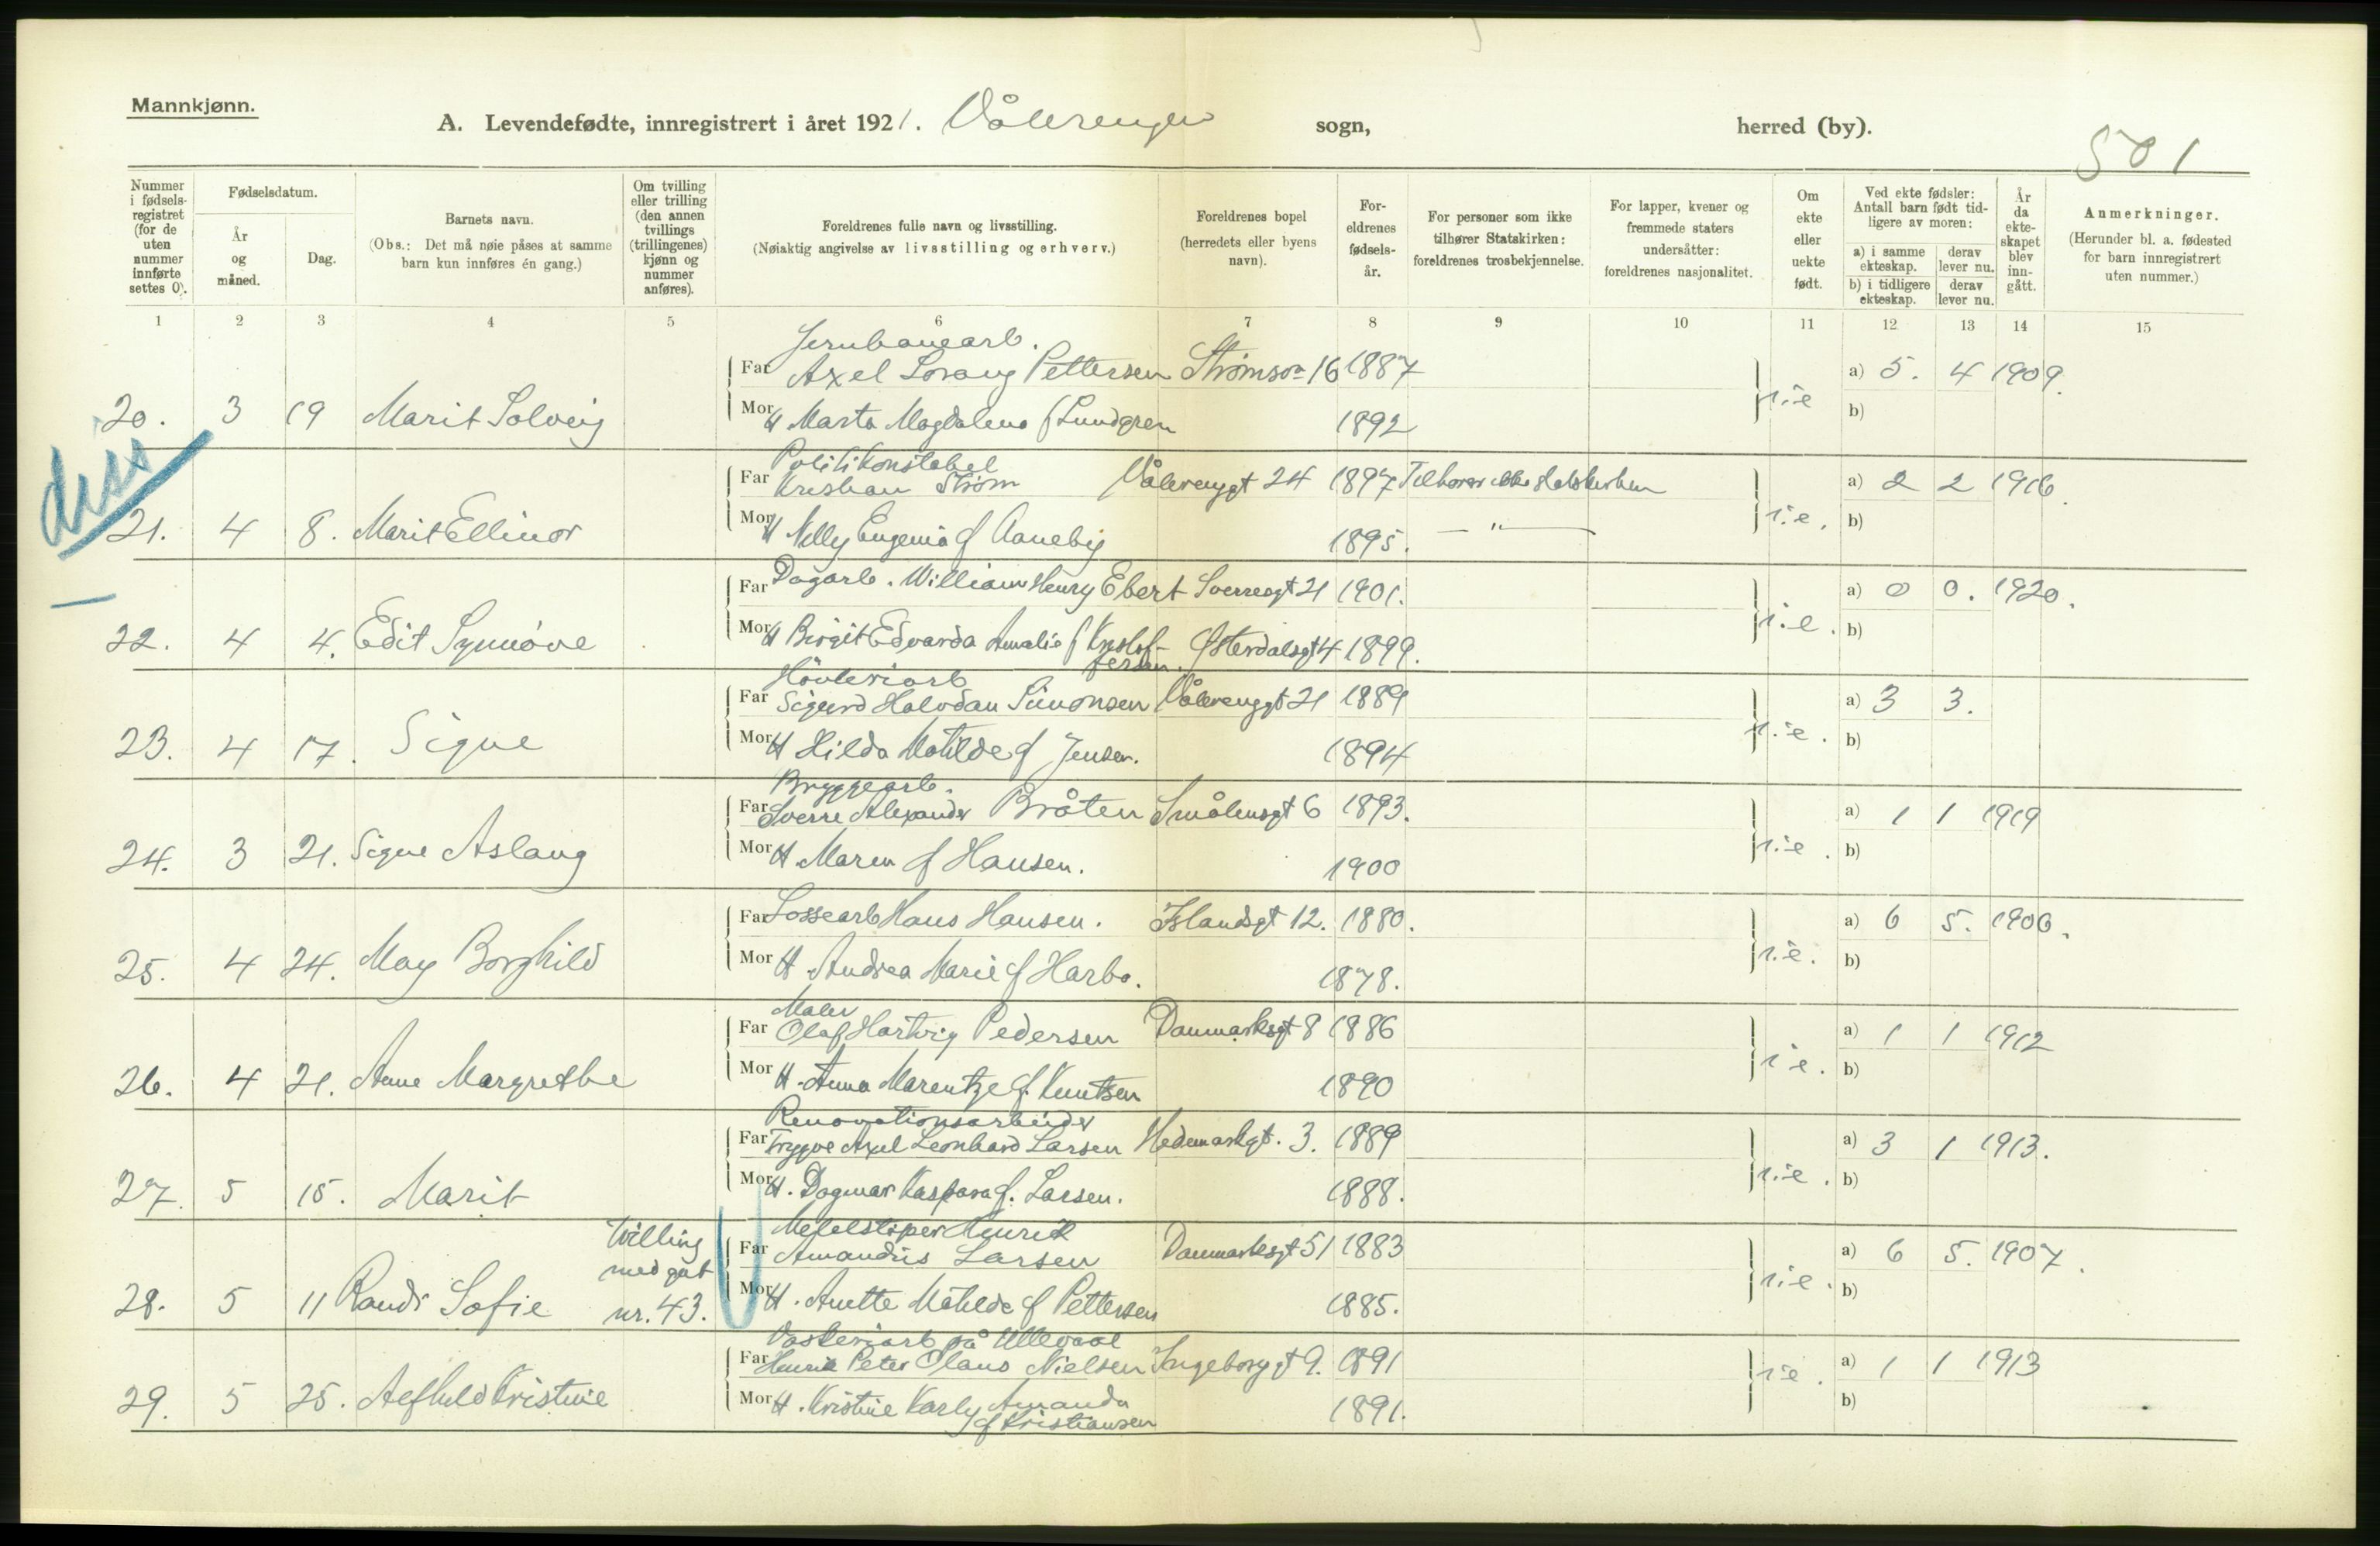 Mannkjønn.
A. Levendefødte, innregistrert i året 1921. Vålerengen sogn, herred (by).
501
Nummer i fødsels-registret (for de uten nummer innførte settes 0).
Fødselsdatum.
År og måned.
Dag.
Barnets navn.
(Obs.: Det må nøie påses at samme barn kun innføres én gang.)
Om tvilling eller trilling (den annen tvillings (trillingenes) kjønn og nummer anføres).
Foreldrenes fulle navn og livsstilling.
(Nøiaktig angivelse av livsstilling og erhverv.)
Foreldrenes bopel (herredets eller byens navn).
For-eldrenes fødsels-år.
For personer som ikke tilhører Statskirken: foreldrenes trosbekjennelse.
For lapper, kvener og fremmede staters undersåtter: foreldrenes nasjonalitet.
Om ekte eller uekte født.
Ved ekte fødsler: Antall barn født tid-ligere av moren:
a) i samme ekteskap. derav lever nu.
b) i tidligere ekteskap. derav lever nu.
År da ekte-skapet blev inn-gått.
Anmerkninger.
(Herunder bl. a. fødested for barn innregistrert uten nummer.)
1 2 3 4 5 6 7 8 9 10 11 12 13 14 15
Jernbanearb.
Far Axel Lorang Pettersen Strømsv 16 1887 a) 5. 4 1909.
20. 3 19 Marit Solveig Mor H Marta Magdalena f Lundgren 1892 b)
diss
Politikonstabel
Far Kristian Strøm Vålerenggt 24 1897 Tilhører ikke statskirken a) 2 2 1916
21. 4 8. Marit Ellinor Mor H Nelly Eugenia f Aaneby 1895. — " — b)
Far Dagarb. William Henry Ebert Sverresgt 21 1901. a) 0 0. 1920.
22. 4 4. Edit Synnöve Mor H Birgit Edvarda Amalie f Kristof-fersen. Østerdalsgt 4 1899. b)
Hövleriarb
Far Sigurd Halvdan Simonsen Vålerenggt 21 1889 a) 3 3.
23. 4 17. Signe Mor H Hilda Matilde f Jensen. 1894 b)
Bryggearb.
Far Sverre Alexander Bråten Smålensgt 6 1893. a) 1 1 1919
24. 3 21. Signe Aslaug Mor H. Maren f Hansen. 1900 b)
Far Lossearb Hans Hansen. Islandsgt 12. 1880. a) 6 5. 1906.
25. 4 24. May Borghild Mor H. Andrea Marie f Harbo. 1878. b)
Maler
Far Olaf Hartvig Pedersen Danmarksgt 8 1886 a) 1 1 1912
26. 4 21. Anne Margrethe Mor H. Anna Marentze f. Knutsen 1890 b)
Renovationsarbeider
Far Trygve Axel Leonhard Larsen Hedemarkgt. 3. 1889 a) 3 1 1913.
27. 5 15. Marit Mor H. Dagmar Kaspara f. Larsen. 1888. b)
tvilling med gut nr. 43.
Far Metelstöper Henrik Amandus Larsen Danmarksgt 51 1883 a) 6 5. 1907.
28. 5 11 Randi Sofie Mor H. Anette Matilde f Pettersen 1885. b)
Vaskeriarb på Ullevaal
Far Henrik Peter Olaus Nielsen Ingeborggt 9. 1891 a) 1 1 1913
29. 5 25. Alfhild Kristine Mor H. Kristine Karly Amanda f Kristiansen 1891. b)